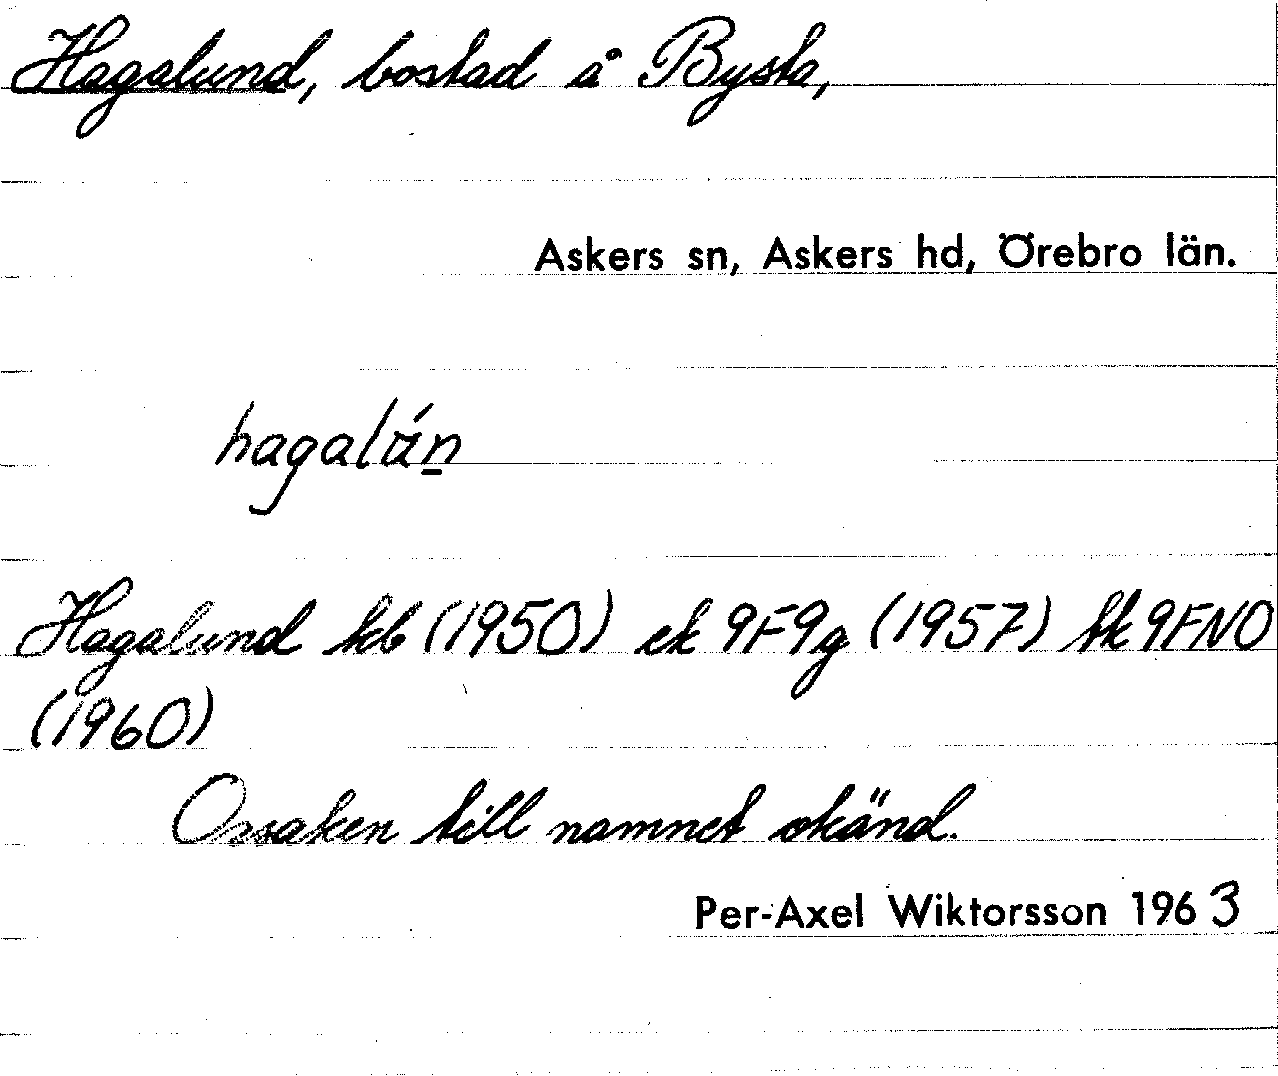 Hagalund, bostad å Bysta,
Askers sn, Askers hd, Örebro län.
Hagalund kb (1950) ek 9F9g (1957) tk 9FNO
(1960)
Orsaken till namnet okänd.
Per-Axel Wiktorsson 1963